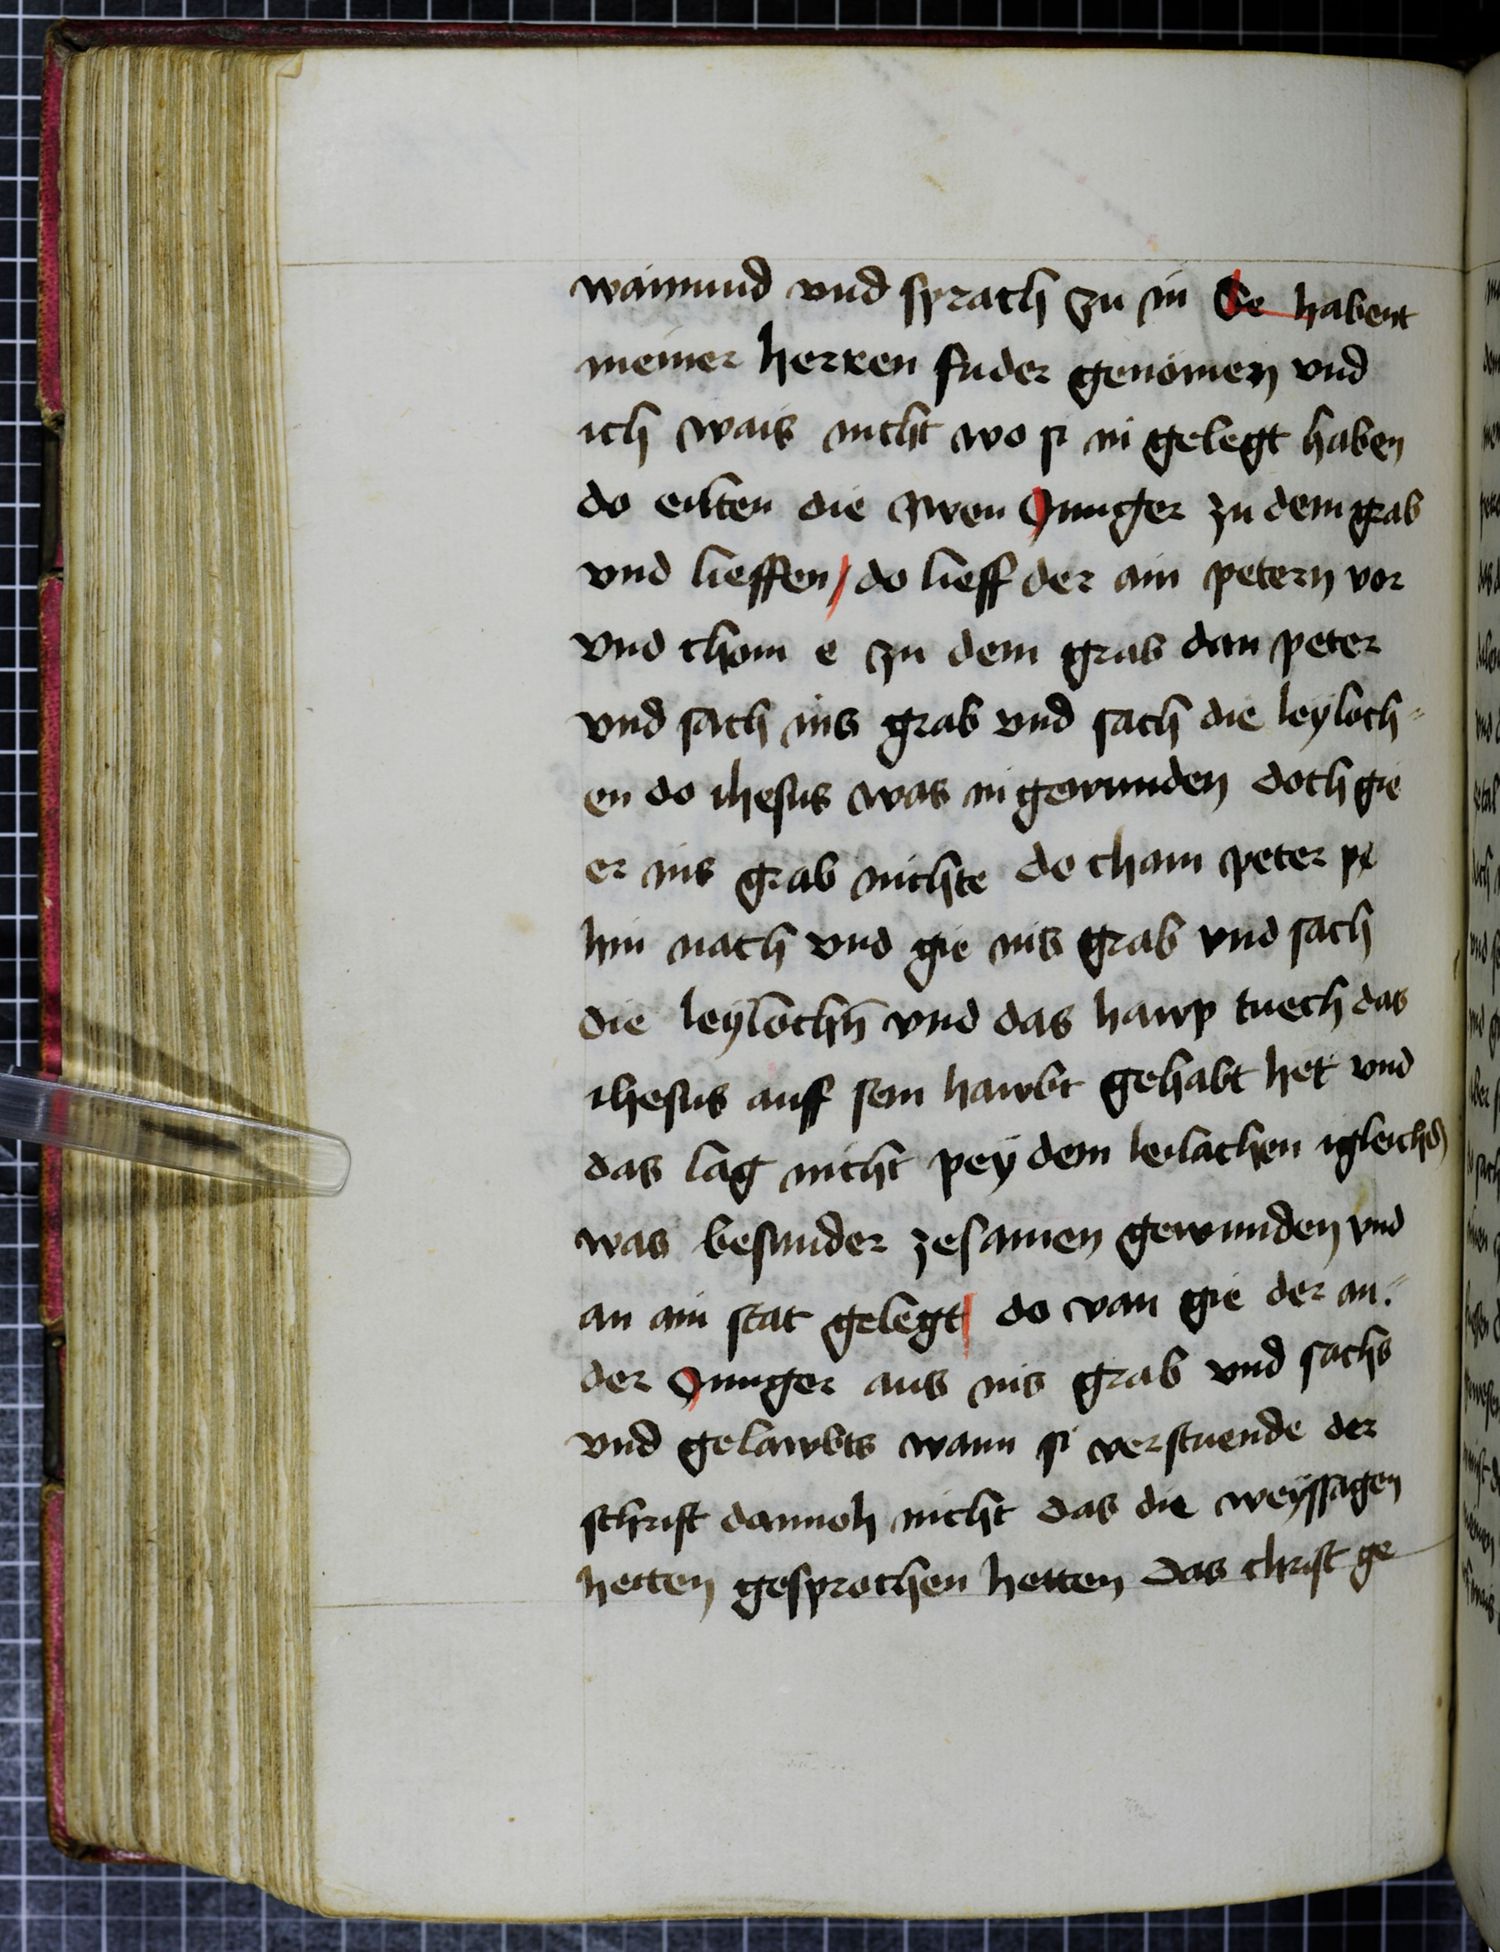 wainund vnd sprach zu in Se habent
meiner herren fuder genömen vnd
ich wais nicht wo si in gelegt haben
do eilten die zwen Junger zu dem grab
vnd lieffen / do lieff der ain petern vor
vnd chom e zu dem grab dan peter
vnd sach ins grab vnd sach die leyloch=
en do ihesus was in gewunden doch gie
er ins grab nichte do cham peter pe
hin nach vnd gie ins grab vnd sach
die leylochn̄ vnd das hawp tuech das
ihesus auff sein hawbt gehabt het vnd
das lag nicht pey dem leilachen igleichs
was besunder zesamen gewunden vnd
an ain stat gelegt / do van gie der an=
der Junger aus ins grab vnd sachs
vnd gelawbts wann si verstuende der
schrift dannoh nicht das die weyssagen
hetten gesprochen hetten das christ ge